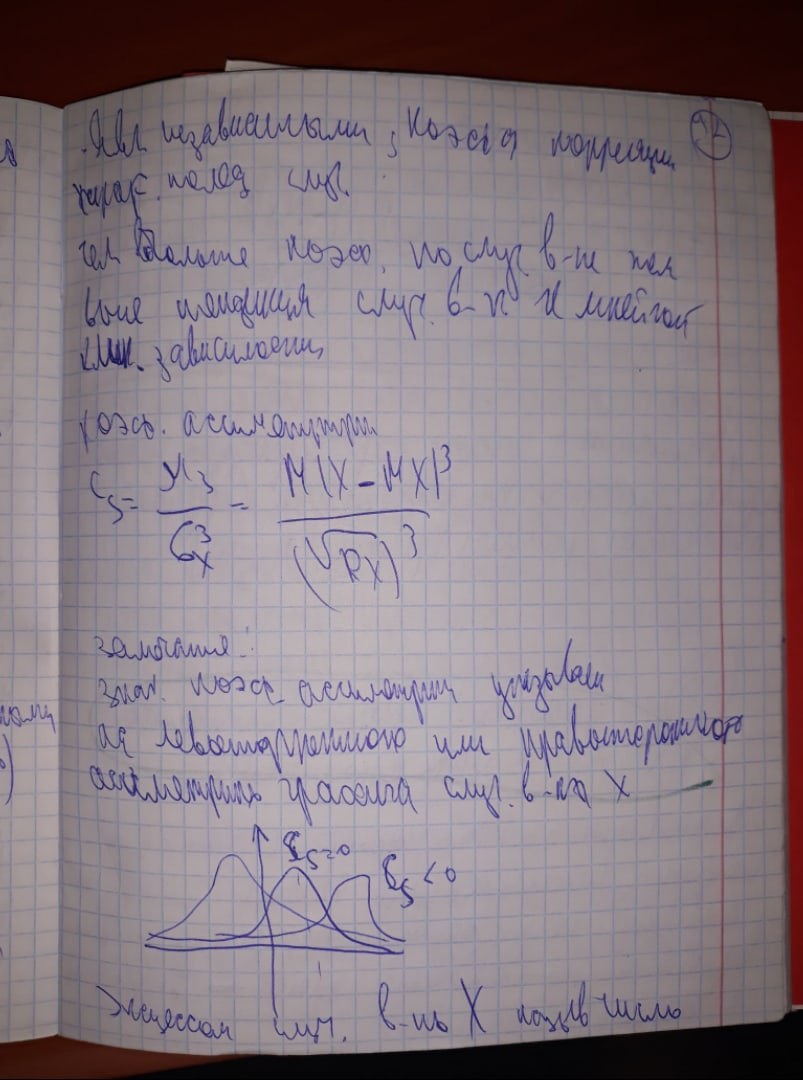 явл. независимыми, коэфф корреляции
харак.
чем больше коэф. случ в-н тем
выше тенденция случ. в-н к линейной
зависимости
коэф. ассиметрии
C_S = μ_3 / σ_X^3 = M(X - MX)^3 / (√DX)^3
замечание:
знак коэф. ассиметрии указывает
на левостороннюю или правостороннюю
ассиметрию графика случ. в-ны X
C_S = 0
C_S < 0
Эксцессом случ. в-ны X назыв число